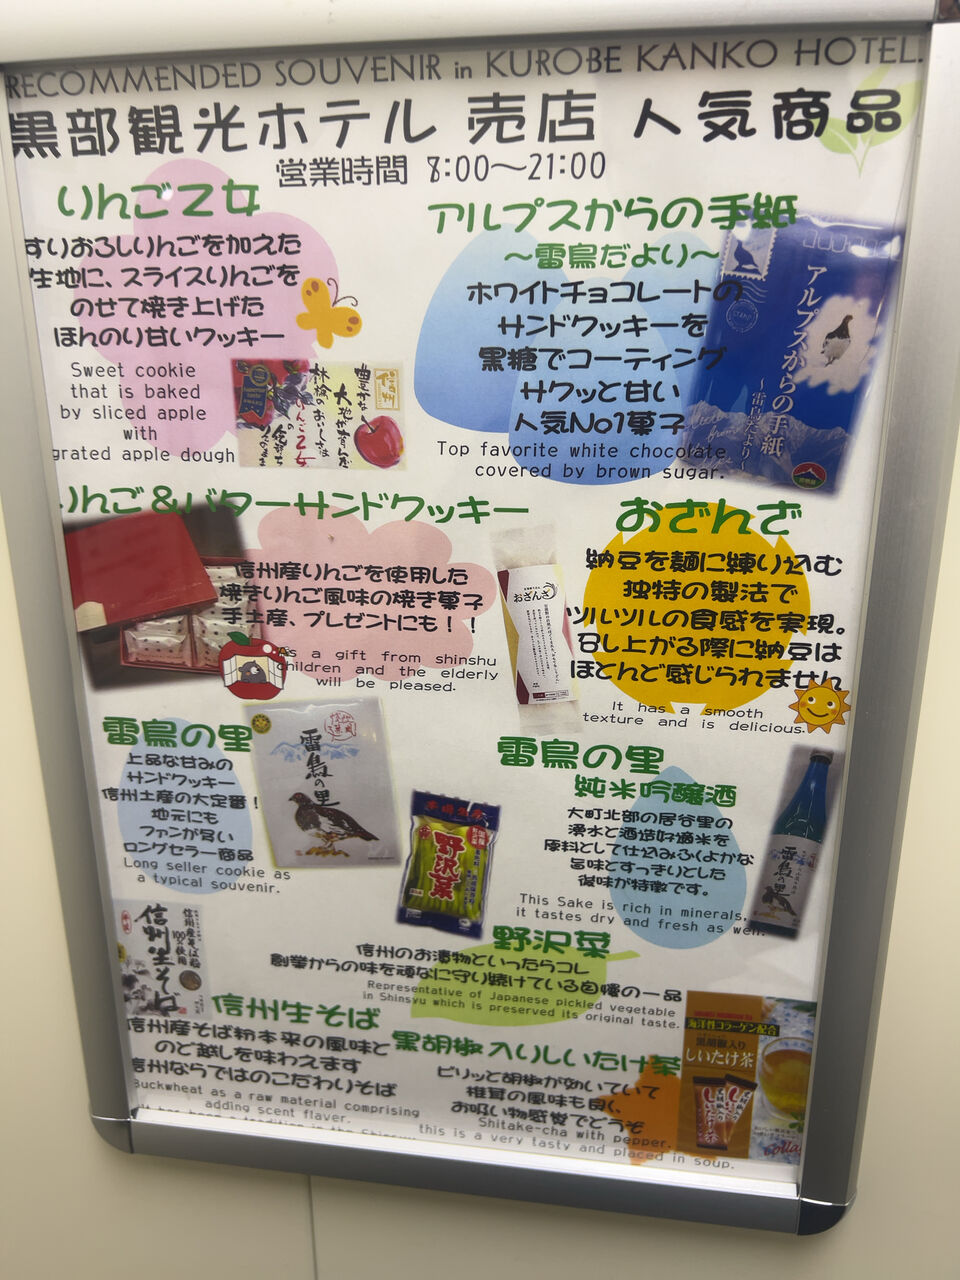 RECOMMENDED SOUVENIR in KUROBE KANKO HOTEL.
黒部観光ホテル 売店 人気商品
営業時間 8:00～21:00
りんご乙女
すりおろしりんごを加えた
生地に、スライスりんごを
のせて焼き上げた
ほんのり甘いクッキー
Sweet cookie
that is baked
by sliced apple
with
grated apple dough
アルプスからの手紙
～雷鳥だより～
ホワイトチョコレートの
サンドクッキーを
黒糖でコーティング
サクッと甘い
人気No1菓子
Top favorite white chocolate
covered by brown sugar.
アルプスからの手紙
～雷鳥だより～
りんご&バターサンドクッキー
信州産りんごを使用した
焼きりんご風味の焼き菓子
手土産、プレゼントにも！！
As a gift from shinshu
children and the elderly
will be pleased.
おざんざ
納豆を麺に練り込む
独特の製法で
ツルツルの食感を実現。
召し上がる際に納豆は
ほとんど感じられません
It has a smooth
texture and is delicious.
おざんざ
雷鳥の里
上品な甘みの
サンドクッキー
信州土産の大定番！
地元にも
ファンが多い
ロングセラー商品
Long seller cookie as
a typical souvenir.
雷鳥の里
雷鳥の里
純米吟醸酒
大町北部の居谷里の
湧水と酒造好適米を
原料として仕込みふくよかな
旨味とすっきりとした
後味が特徴です。
This Sake is rich in minerals,
it tastes dry and fresh as well.
雷鳥の里
野沢菜
野沢菜
信州のお漬物といったらコレ
創業からの味を頑なに守り続けている自慢の一品
Representative of Japanese pickled vegetable
in Shinsyu which is preserved its original taste.
信州産そば粉
100%使用
信州生そば
信州生そば
信州産そば粉本来の風味と
のど越しを味わえます
信州ならではのこだわりそば
Buckwheat as a raw material comprising
adding scent flaver.
黒胡椒入りしいたけ茶
ピリッと胡椒が効いていて
椎茸の風味も良く、
お吸い物感覚でどうぞ
Shitake-cha with pepper.
this is a very tasty and placed in soup.
海洋性コラーゲン配合
黒胡椒入り
しいたけ茶